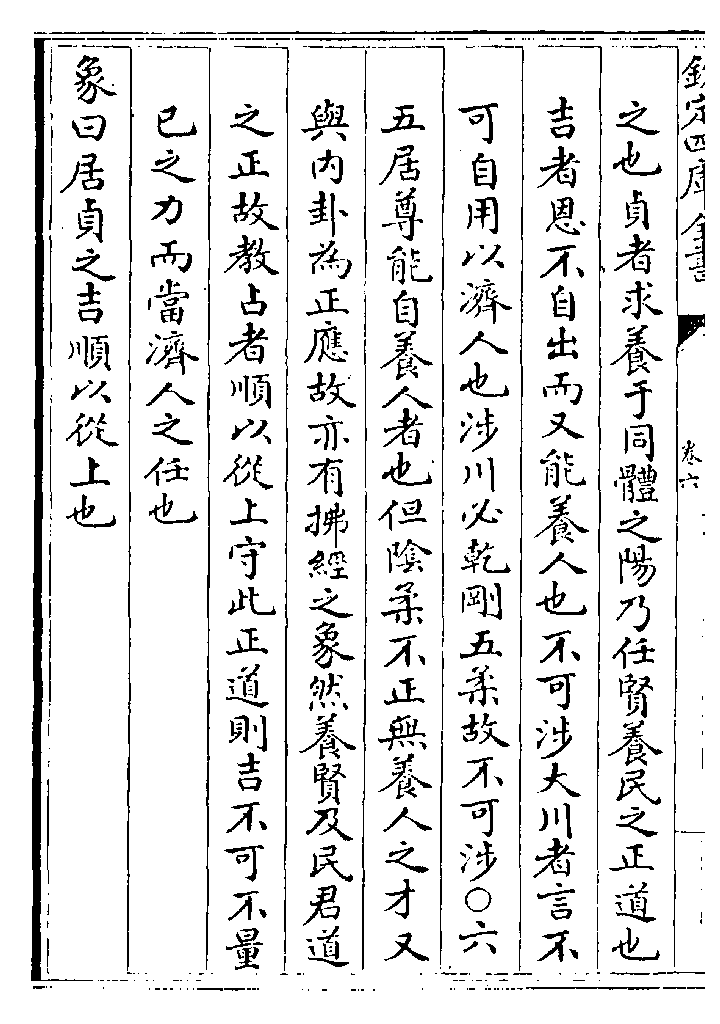 欽定四庫全書
卷六
之也貞者求養于同體之陽乃任賢養民之正道也
吉者恩不自出而又能養人也不可涉大川者言不
可自用以濟人也涉川必乾剛五柔故不可涉○六
五居尊能自養人者也但陰柔不正無養人之才又
與内卦為正應故亦有拂經之象然養賢及民君道
之正故教占者順以從上守此正道則吉不可不量
已之力而當濟人之任也
象曰居貞之吉順以從上也